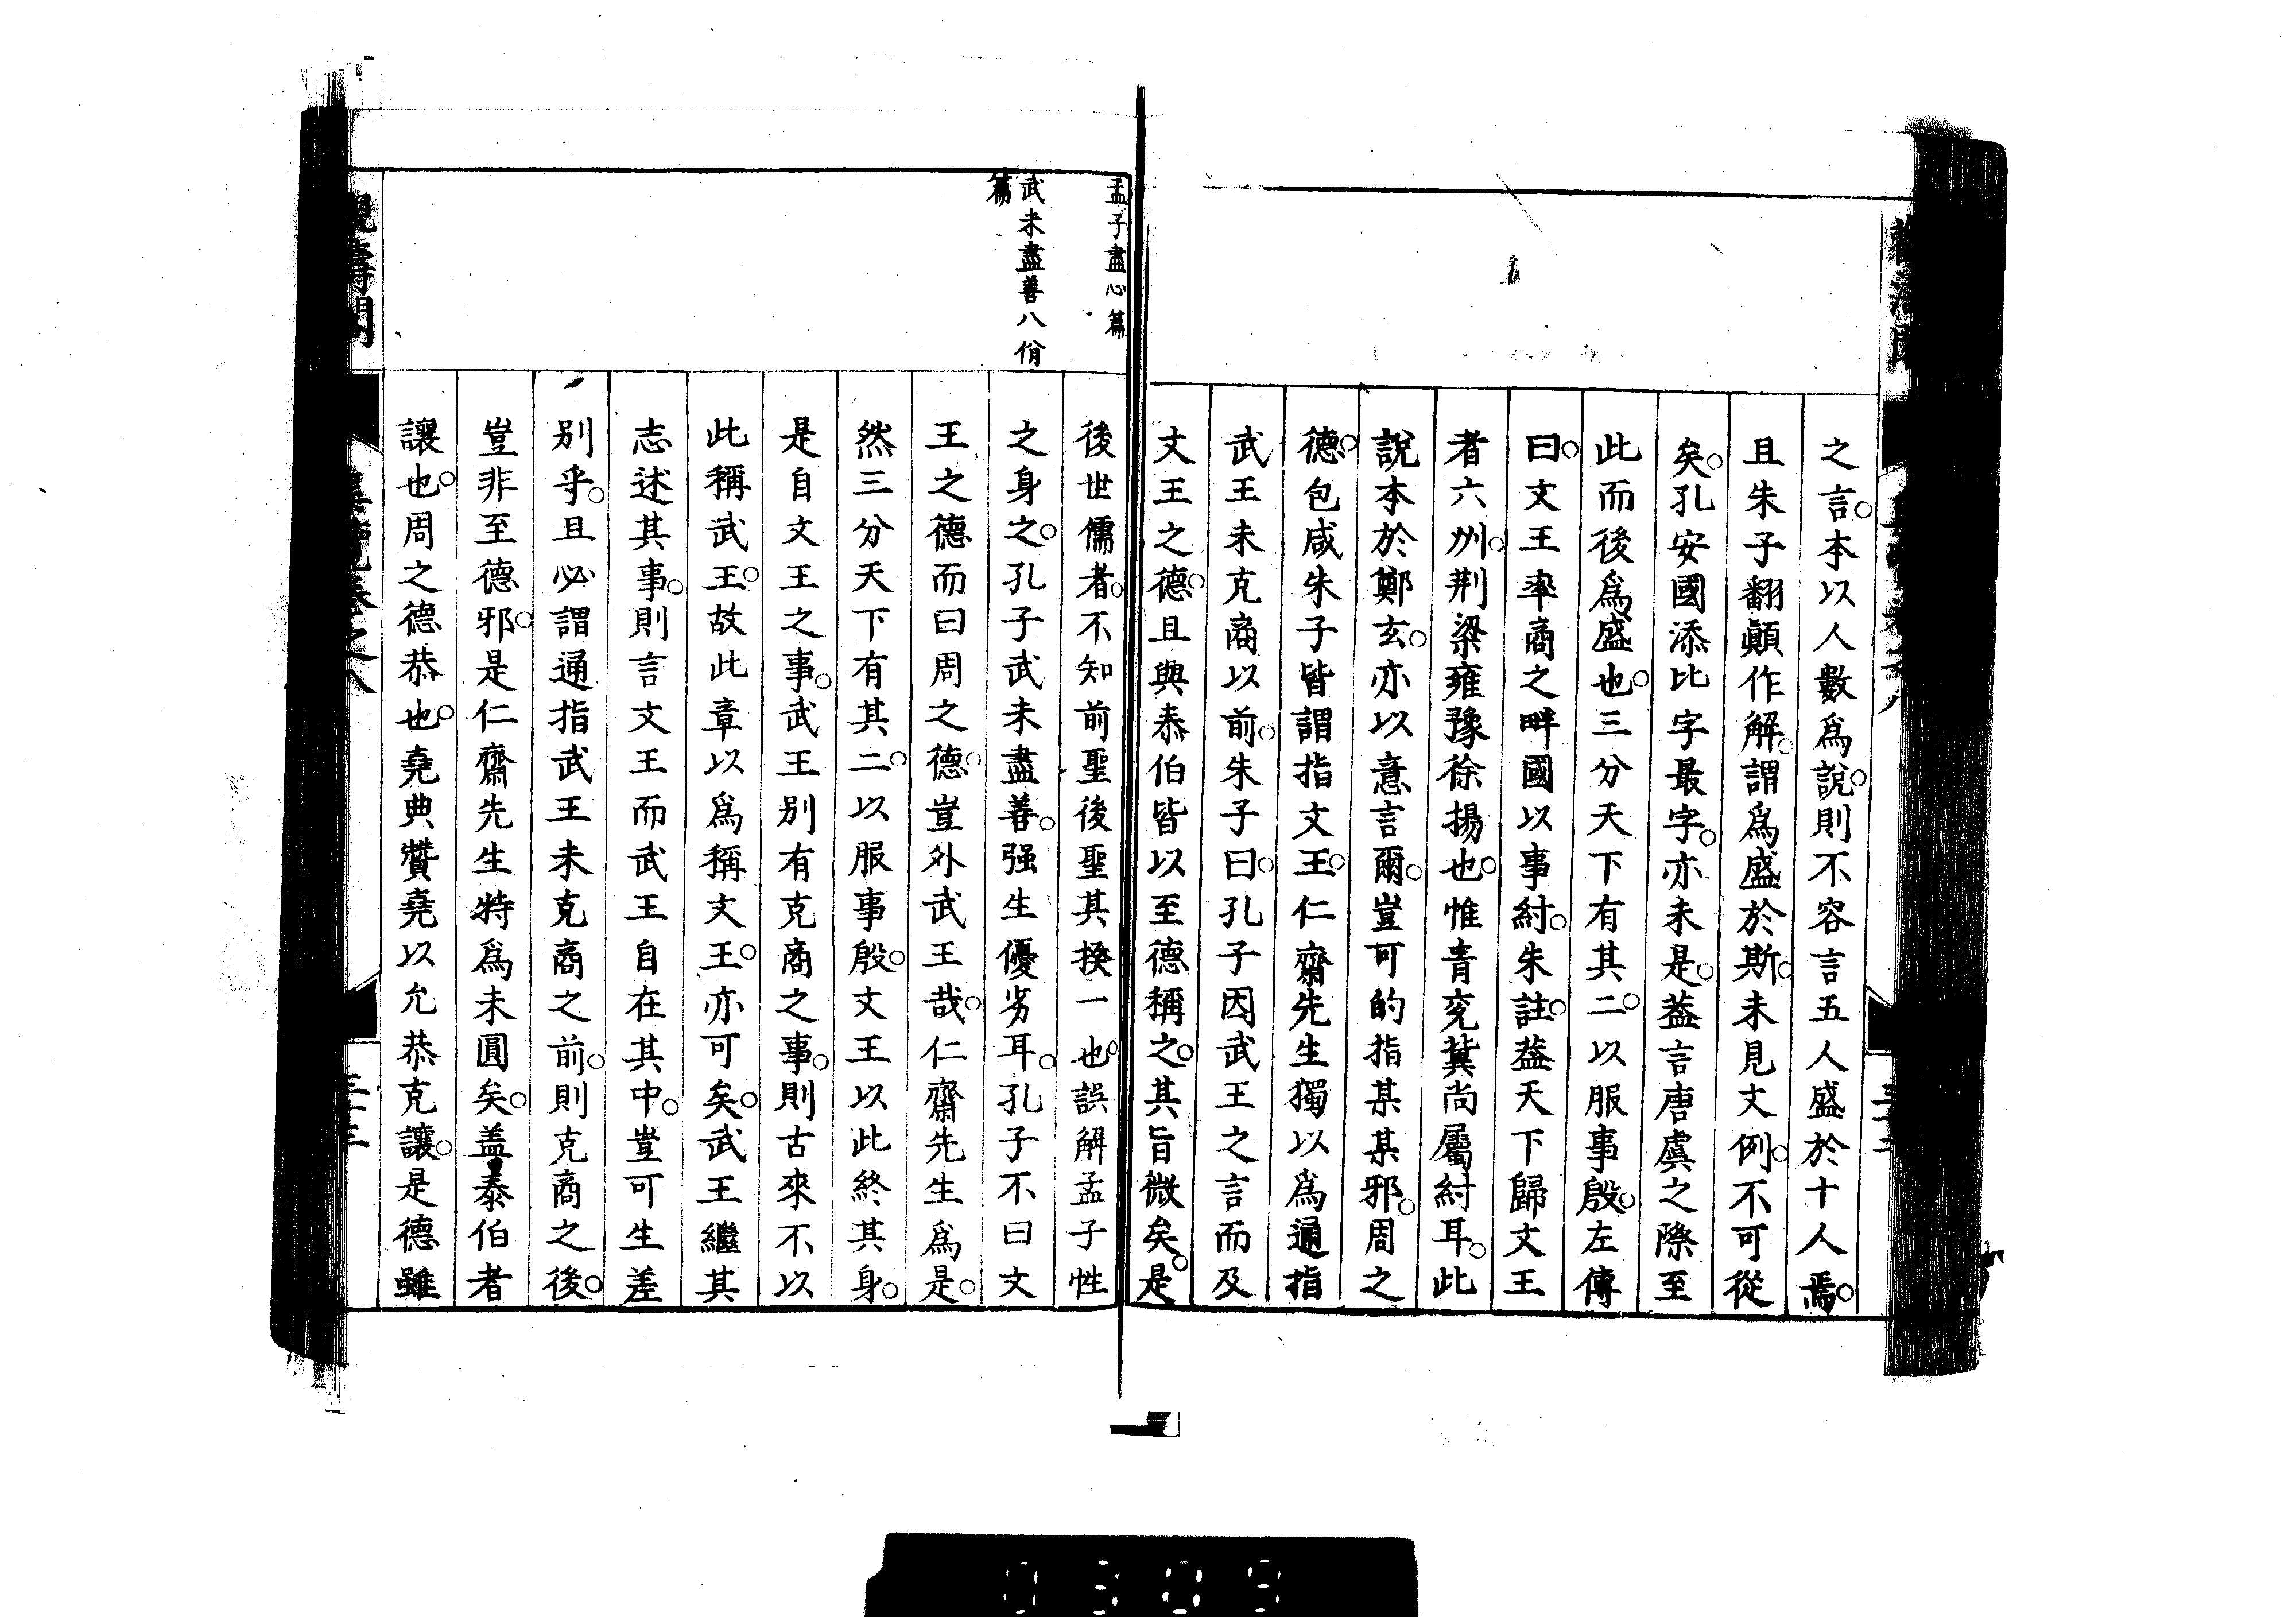 之言。本以人數爲說。則不容言五人盛於十人焉。
且朱子翻顚作解。謂爲盛於斯。未見文例。不可從
矣。孔安國添比字最字。亦未是。葢言唐虞之際至
此而後爲盛也。三分天下有其二。以服事殷。左傳
曰。文王率商之畔國以事紂。朱註。葢天下歸文王
者六州。荆梁雍豫徐揚也。惟青兗冀尚屬紂耳。此
說本於鄭玄。亦以意言爾。豈可的指某某邪。周之
德。包咸朱子皆謂指文王。仁齋先生獨以爲通指
武王未克商以前。朱子曰。孔子因武王之言而及
文王之德。且與泰伯皆以至德稱之。其旨微矣。是
孟子盡心篇
武未盡善八佾
篇
後世儒者。不知前聖後聖其揆一也。誤解孟子性
之身之。孔子武未盡善。强生優劣耳。孔子不曰文
王之德而曰周之德。豈外武王哉。仁齋先生爲是。
然三分天下有其二。以服事殷。文王以此終其身。
是自文王之事。武王别有克商之事。則古來不以
此稱武王。故此章以爲稱文王。亦可矣。武王繼其
志述其事。則言文王而武王自在其中。豈可生差
别乎。且必謂通指武王未克商之前。則克商之後。
豈非至德邪。是仁齋先生特爲未圓矣。盖泰伯者
讓也。周之德恭也。堯典贊堯以允恭克讓。是德雖
0309